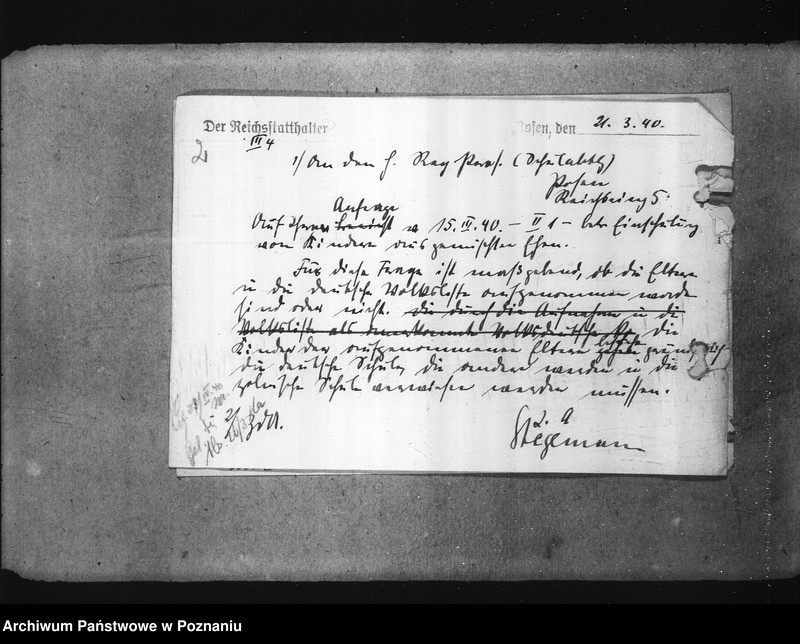 Der Reichsstatthalter Posen, den 21. 3. 40.
III 4
1/ An den H. Reg Präs. (Schulabtlg)
Posen
Reichsring 5.
Anfrage
Auf Ihren Bericht v 15. III. 40. – II 1 – betr Einschulung
von Kindern aus gemischten Ehen.
Für diese Frage ist maßgebend, ob die Eltern
in die deutsche Volksliste aufgenommen worden
sind oder nicht. die durch die Aufnahme in die
Volksliste als anerkannte Volksdeutsche die
Kinder der aufgenommenen Eltern
die deutsche Schule, die anderen werden in die
polnische Schule verwiesen werden müssen.
2/ ZdA.
I. A
Stegemann
Archiwum Państwowe w Poznaniu